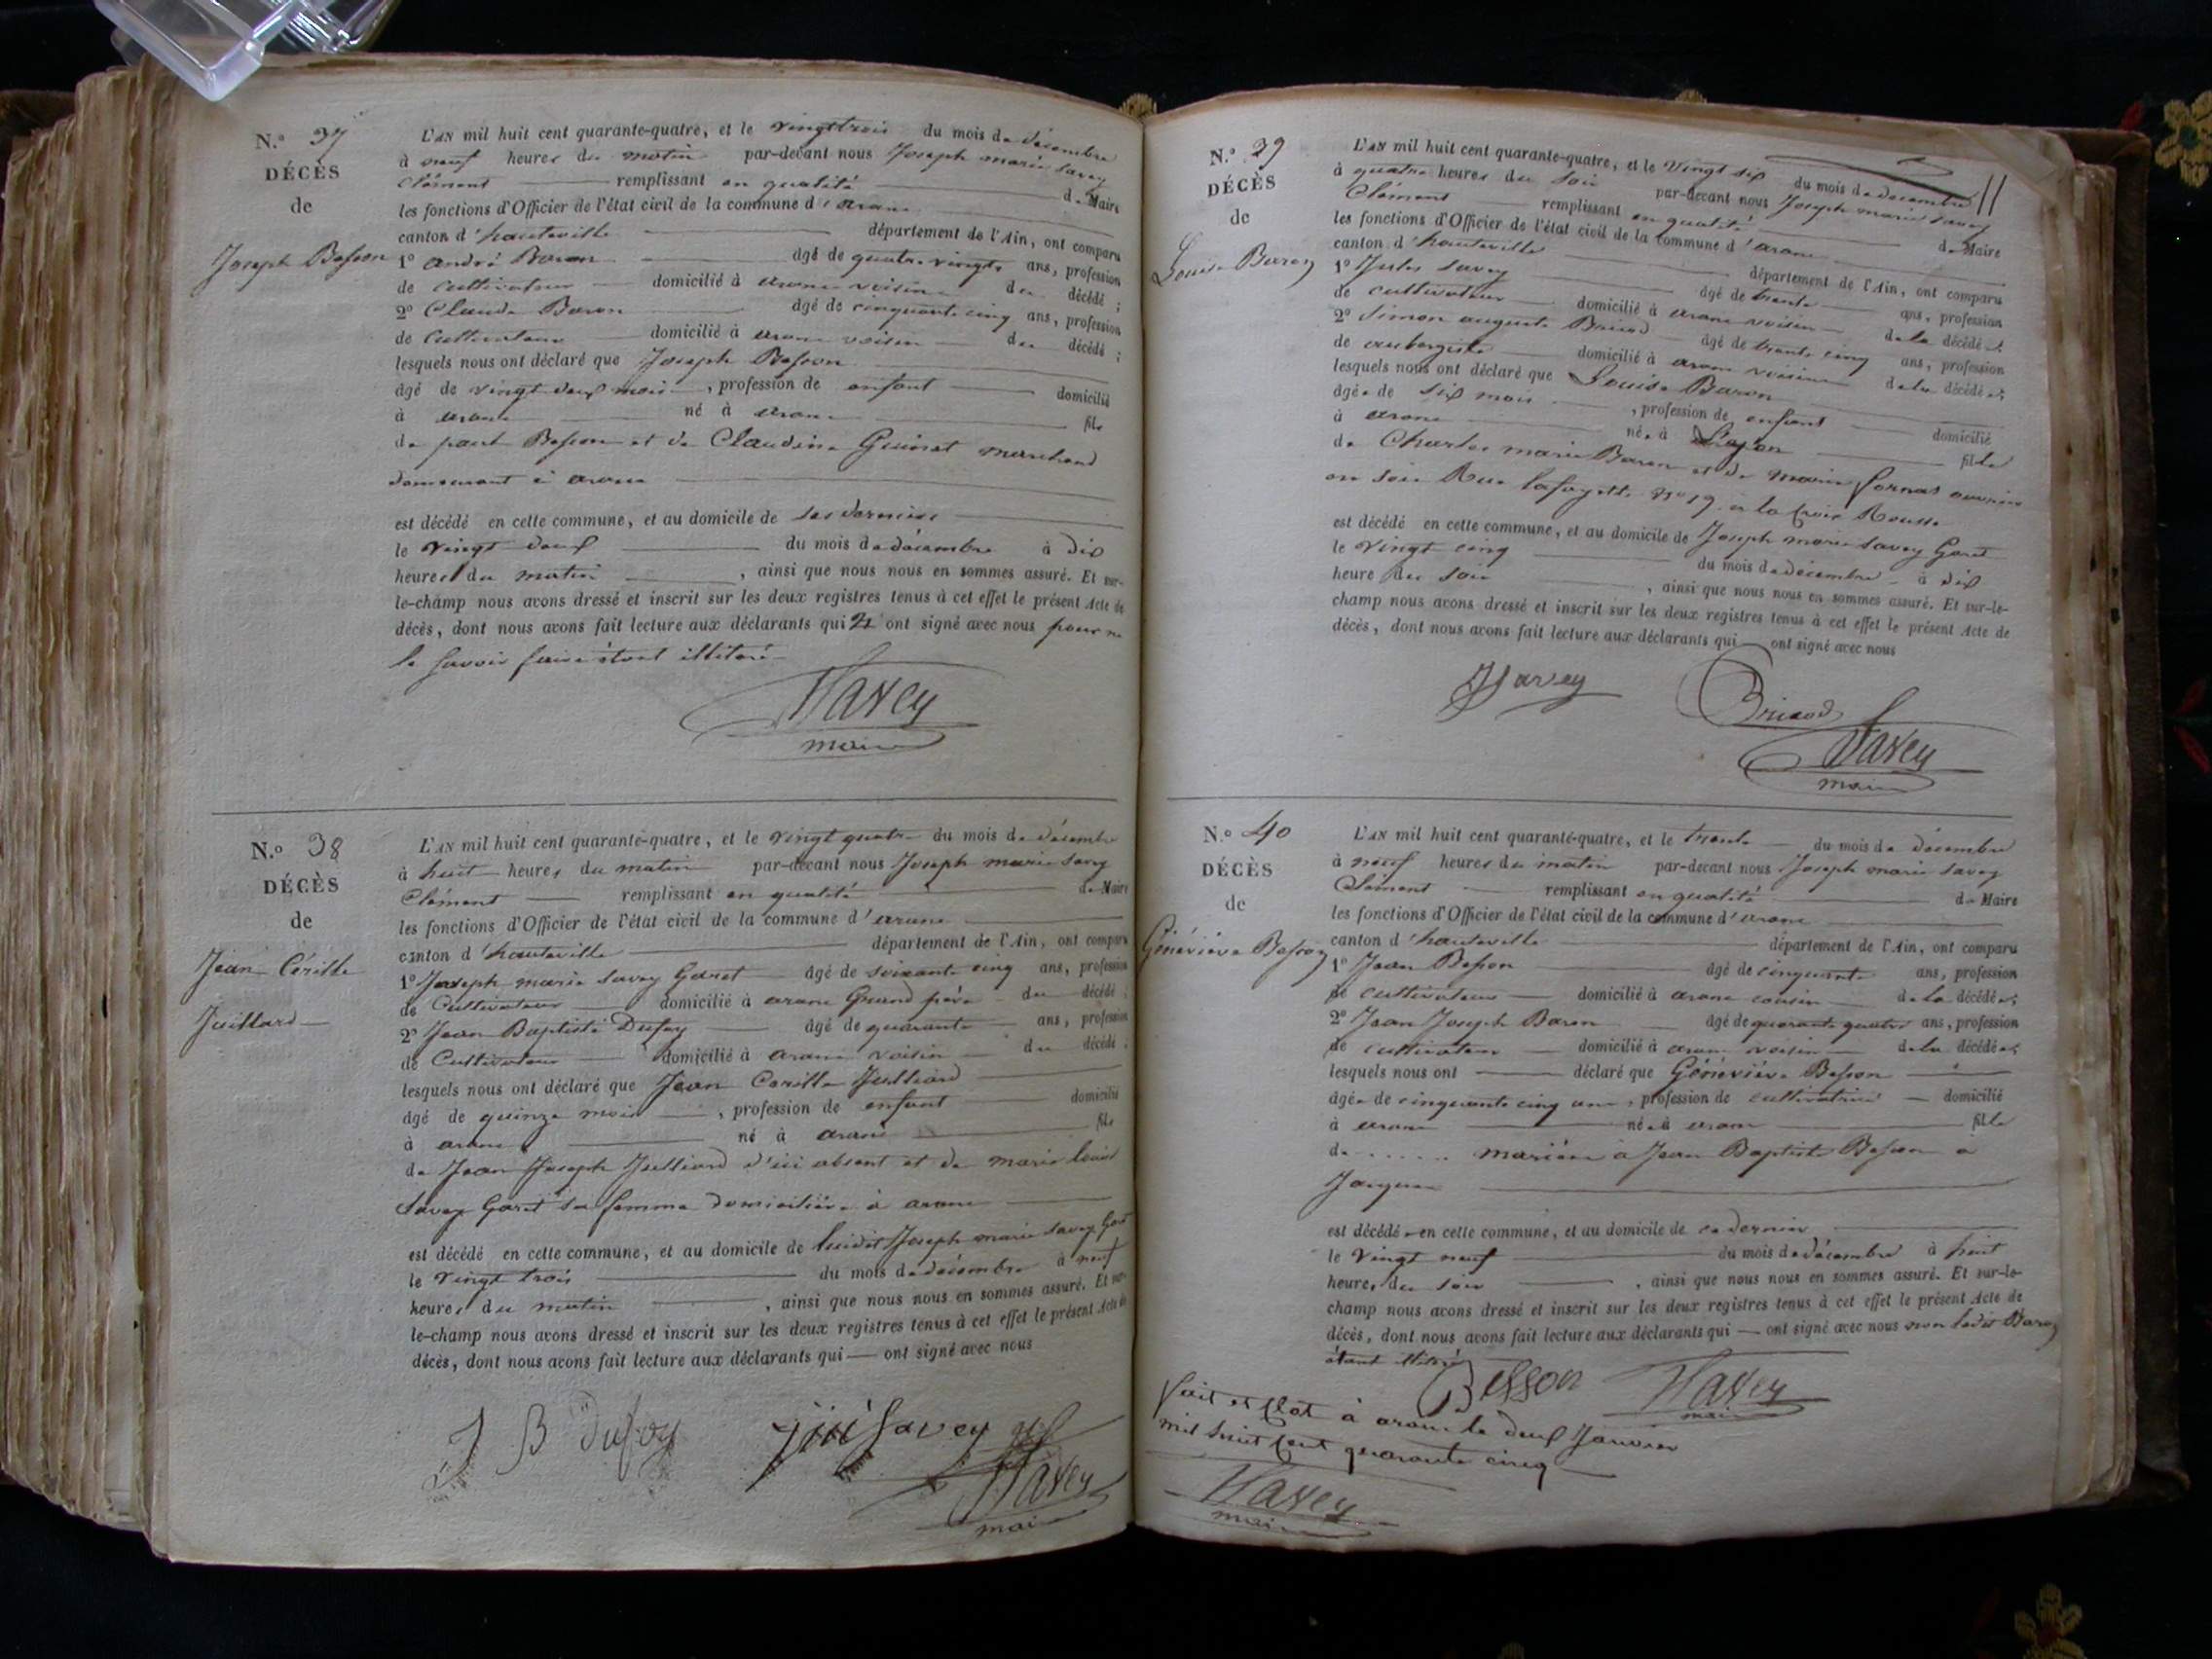 N.º 37
DÉCÈS
de
Joseph Besson
L'AN mil huit cent quarante-quatre, et le vingt trois du mois de décembre
à neuf heures du matin par-devant nous Joseph marie Savey
Clément remplissant en qualité de Maire
les fonctions d'Officier de l'état civil de la commune d'arane
canton d'hauteville département de l'Ain, ont comparu
1º andré Baron âgé de quatre vingts ans, profession
de cultivateur domicilié à arane voisin du décédé ;
2º Claude Baron âgé de cinquante cinq ans, profession
de cultivateur domicilié à arane voisin du décédé ;
lesquels nous ont déclaré que Joseph Besson
âgé de vingt deux mois, profession de enfant domicilié
à arane né à arane fils
de paul Besson et de Claudine Guinet marchand
demeurant à arane
est décédé en cette commune, et au domicile de ses derniers
le vingt deux du mois de décembre à dix
heures du matin, ainsi que nous nous en sommes assuré. Et sur-
le-champ nous avons dressé et inscrit sur les deux registres tenus à cet effet le présent Acte de
décès, dont nous avons fait lecture aux déclarants qui n'ont signé avec nous pour ne
le savoir faire étant illitéré
Savey
maire
N.º 38
DÉCÈS
de
Jean Cérille
Juillard
L'AN mil huit cent quarante-quatre, et le vingt quatre du mois de décembre
à huit heures du matin par-devant nous Joseph marie Savey
Clément remplissant en qualité de Maire
les fonctions d'Officier de l'état civil de la commune d'arane
canton d'hauteville département de l'Ain, ont comparu
1º Joseph marie Savey Garet âgé de soixante cinq ans, profession
de Cultivateur domicilié à arane Grand père du décédé ;
2º Jean Baptiste Dufoy âgé de quarante ans, profession
de Cultivateur domicilié à arane voisin du décédé ;
lesquels nous ont déclaré que Jean Cerille Julliard
âgé de quinze mois, profession de enfant domicilié
à arane né à arane fils
de Jean Joseph Julliard d'ici absent et de marie louise
Savey Garet sa femme domiciliée à arane
est décédé en cette commune, et au domicile de ludit Joseph marie Savey Garet
le vingt trois du mois de décembre à neuf
heures du matin, ainsi que nous nous en sommes assuré. Et sur-
le-champ nous avons dressé et inscrit sur les deux registres tenus à cet effet le présent Acte de
décès, dont nous avons fait lecture aux déclarants qui ont signé avec nous
J B Dufoy Savey
Savey
maire
N.º 39
DÉCÈS
de
Louise Baron
L'AN mil huit cent quarante-quatre, et le vingt six du mois de décembre
à quatre heures du soir par-devant nous Joseph marie Savey
Clément remplissant en qualité de Maire
les fonctions d'Officier de l'état civil de la commune d'arane
canton d'hauteville département de l'Ain, ont comparu
1º Jules Savey âgé de trente ans, profession
de cultivateur domicilié à arane voisin de la décédée ;
2º Simon auguste Bricod âgé de trente cinq ans, profession
de aubergiste domicilié à arane voisin de la décédée ;
lesquels nous ont déclaré que Louise Baron
âgée de six mois, profession de enfant domicilié
à arane née à Lyon fille
de Charles marie Baron et de marie fornas ouvriers
en soie Rue lafayette nº 19 à la Croix Rousse
est décédé en cette commune, et au domicile de Joseph marie Savey Garet
le vingt cinq du mois de décembre à dix
heure du soir, ainsi que nous nous en sommes assuré. Et sur-le-
champ nous avons dressé et inscrit sur les deux registres tenus à cet effet le présent Acte de
décès, dont nous avons fait lecture aux déclarants qui ont signé avec nous
JSavey Bricod
Savey
maire
N.º 40
DÉCÈS
de
Généviève Besson
L'AN mil huit cent quarante-quatre, et le trente du mois de décembre
à neuf heures du matin par-devant nous Joseph marie Savey
Clément remplissant en qualité de Maire
les fonctions d'Officier de l'état civil de la commune d'arane
canton d'hauteville département de l'Ain, ont comparu
1º Jean Besson âgé de cinquante ans, profession
de cultivateur domicilié à arane cousin de la décédée ;
2º Jean Joseph Baron âgé de quarante quatre ans, profession
de cultivateur domicilié à arane voisin de la décédée ;
lesquels nous ont déclaré que Généviève Besson
âgée de cinquante cinq ans, profession de cultivatrice domicilié
à arane née à arane fille
de ...... mariée à Jean Baptiste Besson à
Jacques
est décédée en cette commune, et au domicile de ce dernier
le vingt neuf du mois de décembre à huit
heures du soir, ainsi que nous nous en sommes assuré. Et sur-le-
champ nous avons dressé et inscrit sur les deux registres tenus à cet effet le présent Acte de
décès, dont nous avons fait lecture aux déclarants qui ont signé avec nous non ledit Baron
étant illitéré
Besson Savey
maire
fait et Clot à arane le deux Janvier
mil huit Cent quarante cinq
Savey
maire